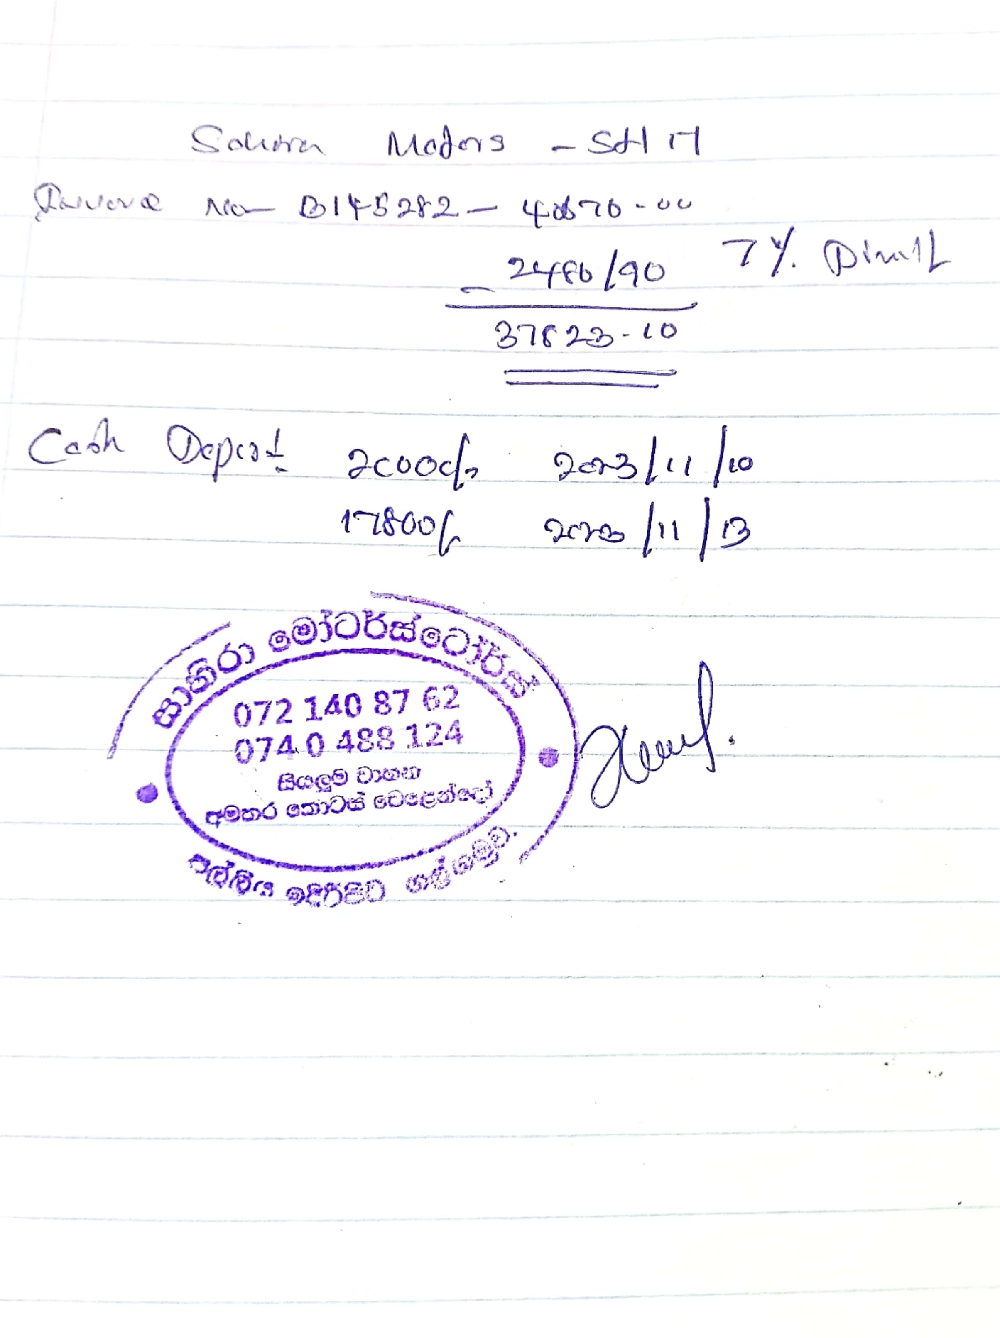 Sahira Motors - SH17
Invoice No - B145282 - 40670-00
7%
- 2486/90
37823-10
Cash Deposit 20000/- 2023/11/10
17800/- 2023/11/13
සාහිරා මෝටර්ස්ටෝර්ස්
072 140 87 62
074 0 488 124
සියලුම වාහන
අමතර කොටස් වෙළෙන්දෝ
පල්ලිය ඉදිරිපිට